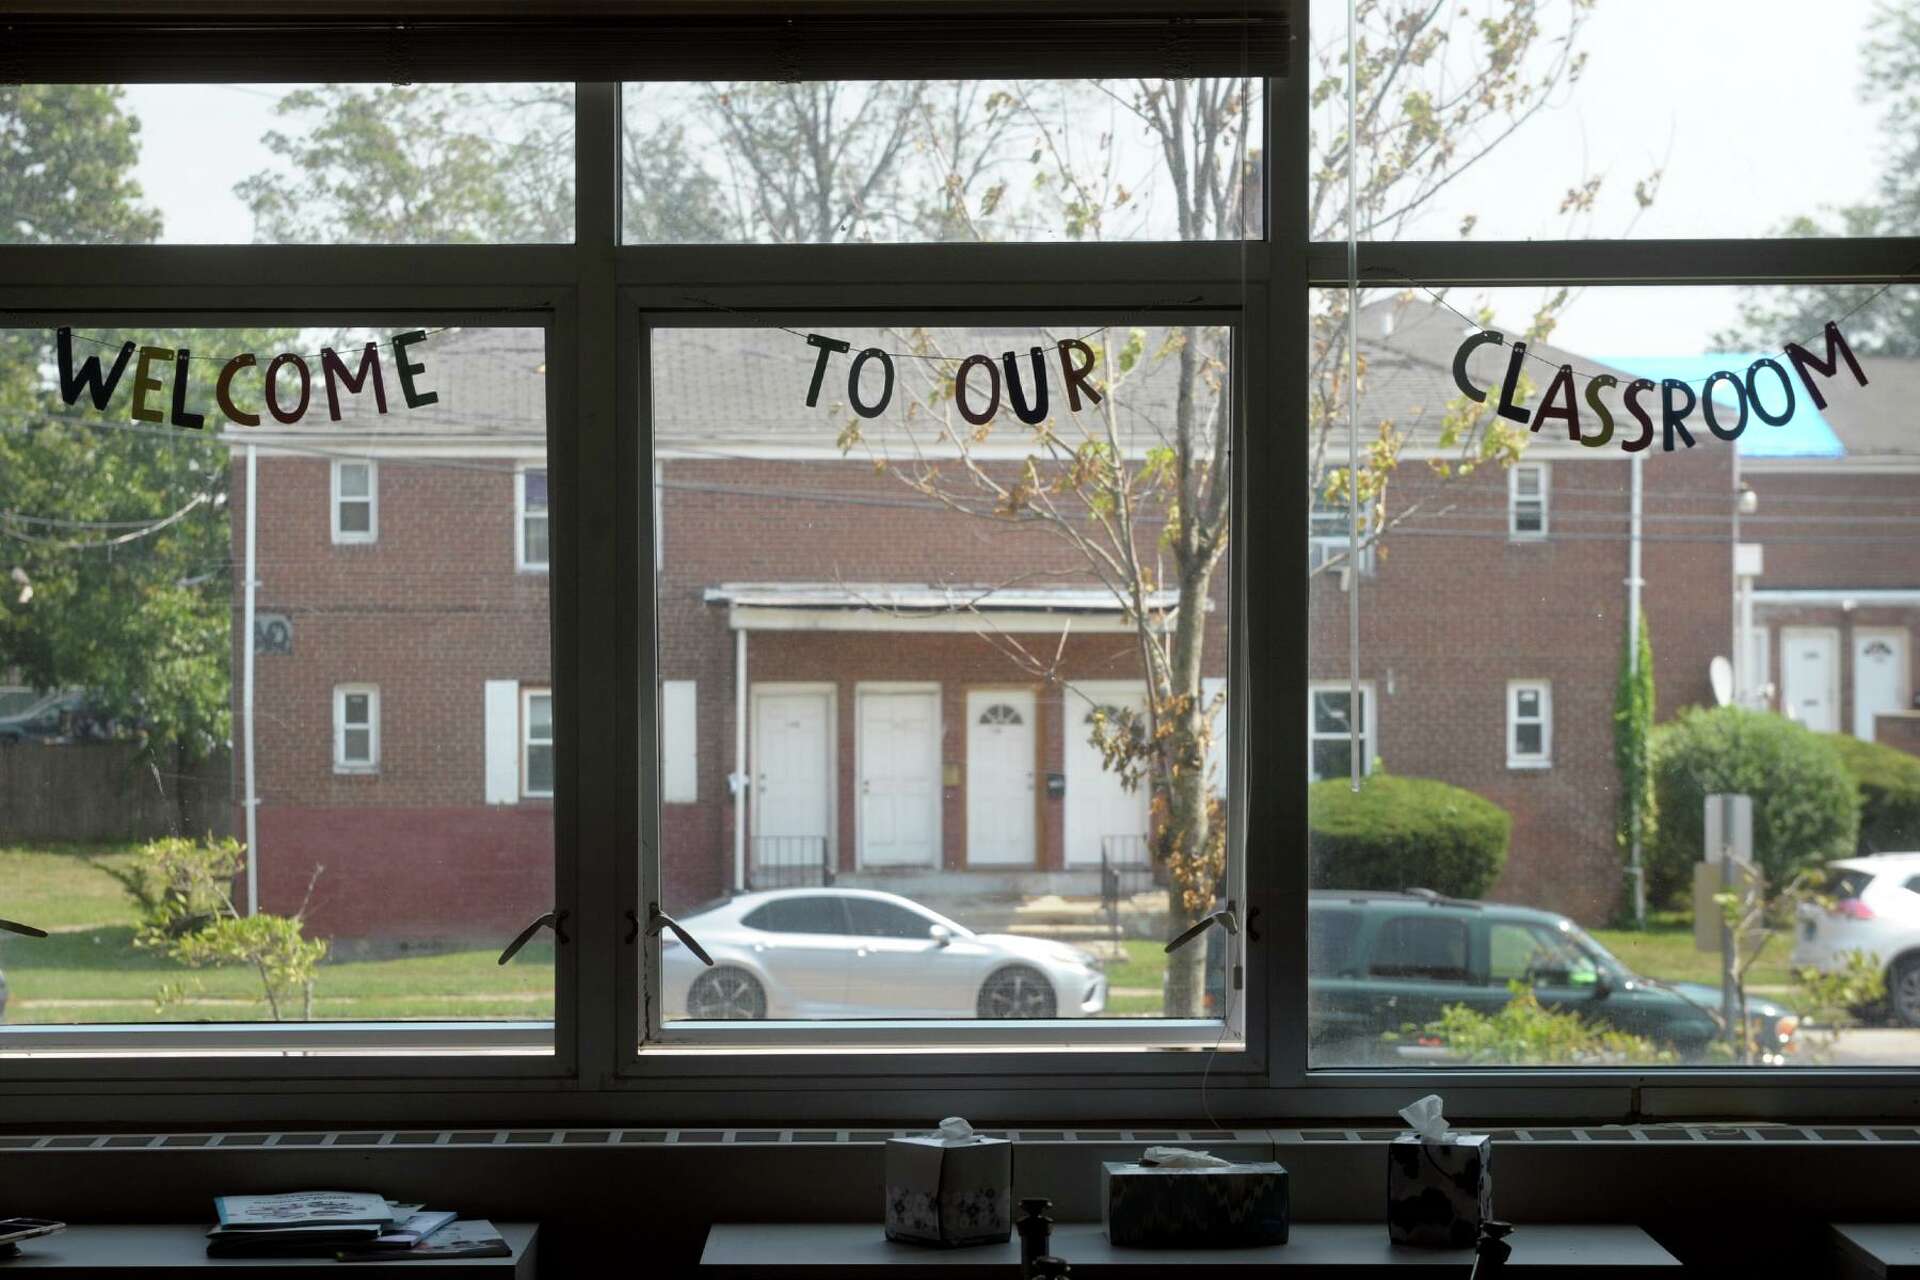 WELCOME TO OUR CLASSROOM